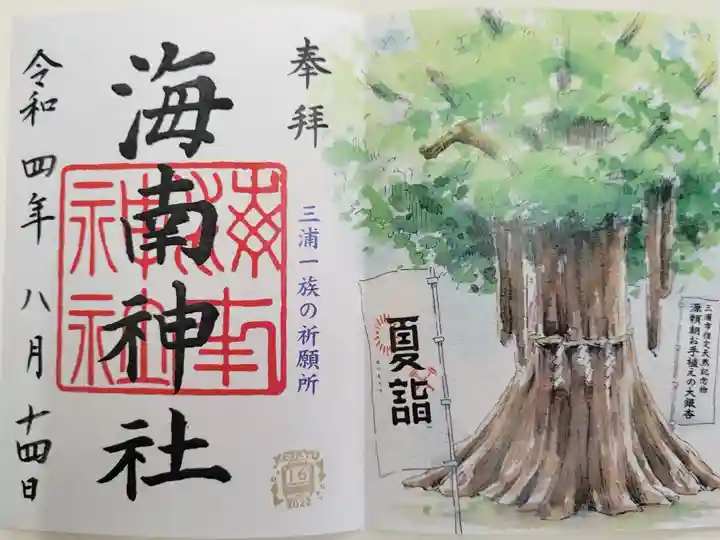 奉拝
三浦一族の祈願所
海南神社
令和四年八月十四日
16
2022
夏詣
三浦市指定天然記念物
源頼朝お手植えの大銀杏